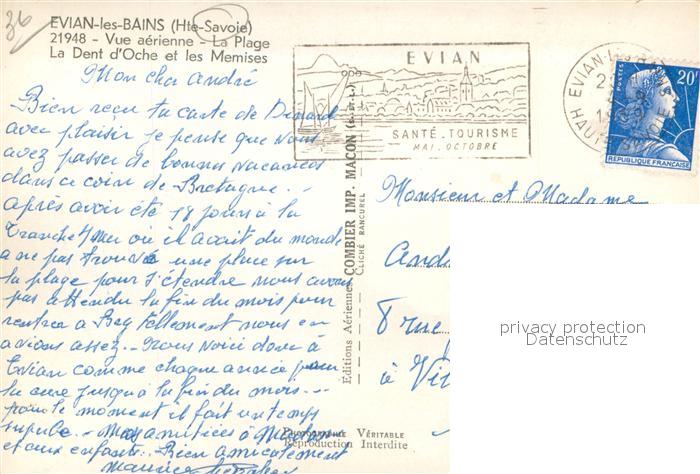 36
EVIAN-les-BAINS (Hte-Savoie)
21948 - Vue aérienne - La Plage
La Dent d'Oche et les Memises
EVIAN
SANTÉ. TOURISME
MAI. OCTOBRE
EVIAN-LES-B
HAUTE SAVOIE
POSTES
20F
REPUBLIQUE FRANÇAISE
Mon cher André
Bien reçu ta carte de Dinard
avec plaisir je pense que vous
avez passer de bonnes vacances
dans ce coin de Bretagne. -
après avoir été 18 jours à la
Tranche s/ Mer où il avait du monde
a ne pas trouver une place sur
la plage pour s'étendre nous avons
pas attendu la fin du mois pour
rentrer a tellement nous en
avions assez. - Nous voici donc à
Evian comme chaque année pour
la cure jusqu'à la fin du mois. --
pour le moment il fait un temps
superbe. - Mes amitiés à Madame
et aux enfants. Bien amicalement
Maurice
Editions Aériennes COMBIER IMP. MACON (S.-&-L.)
CLICHÉ RANCUREL
Monsieur et Madame
And
8 rue
à Vi
privacy protection
Datenschutz
PHOTOGRAPHIE VÉRITABLE
Reproduction Interdite